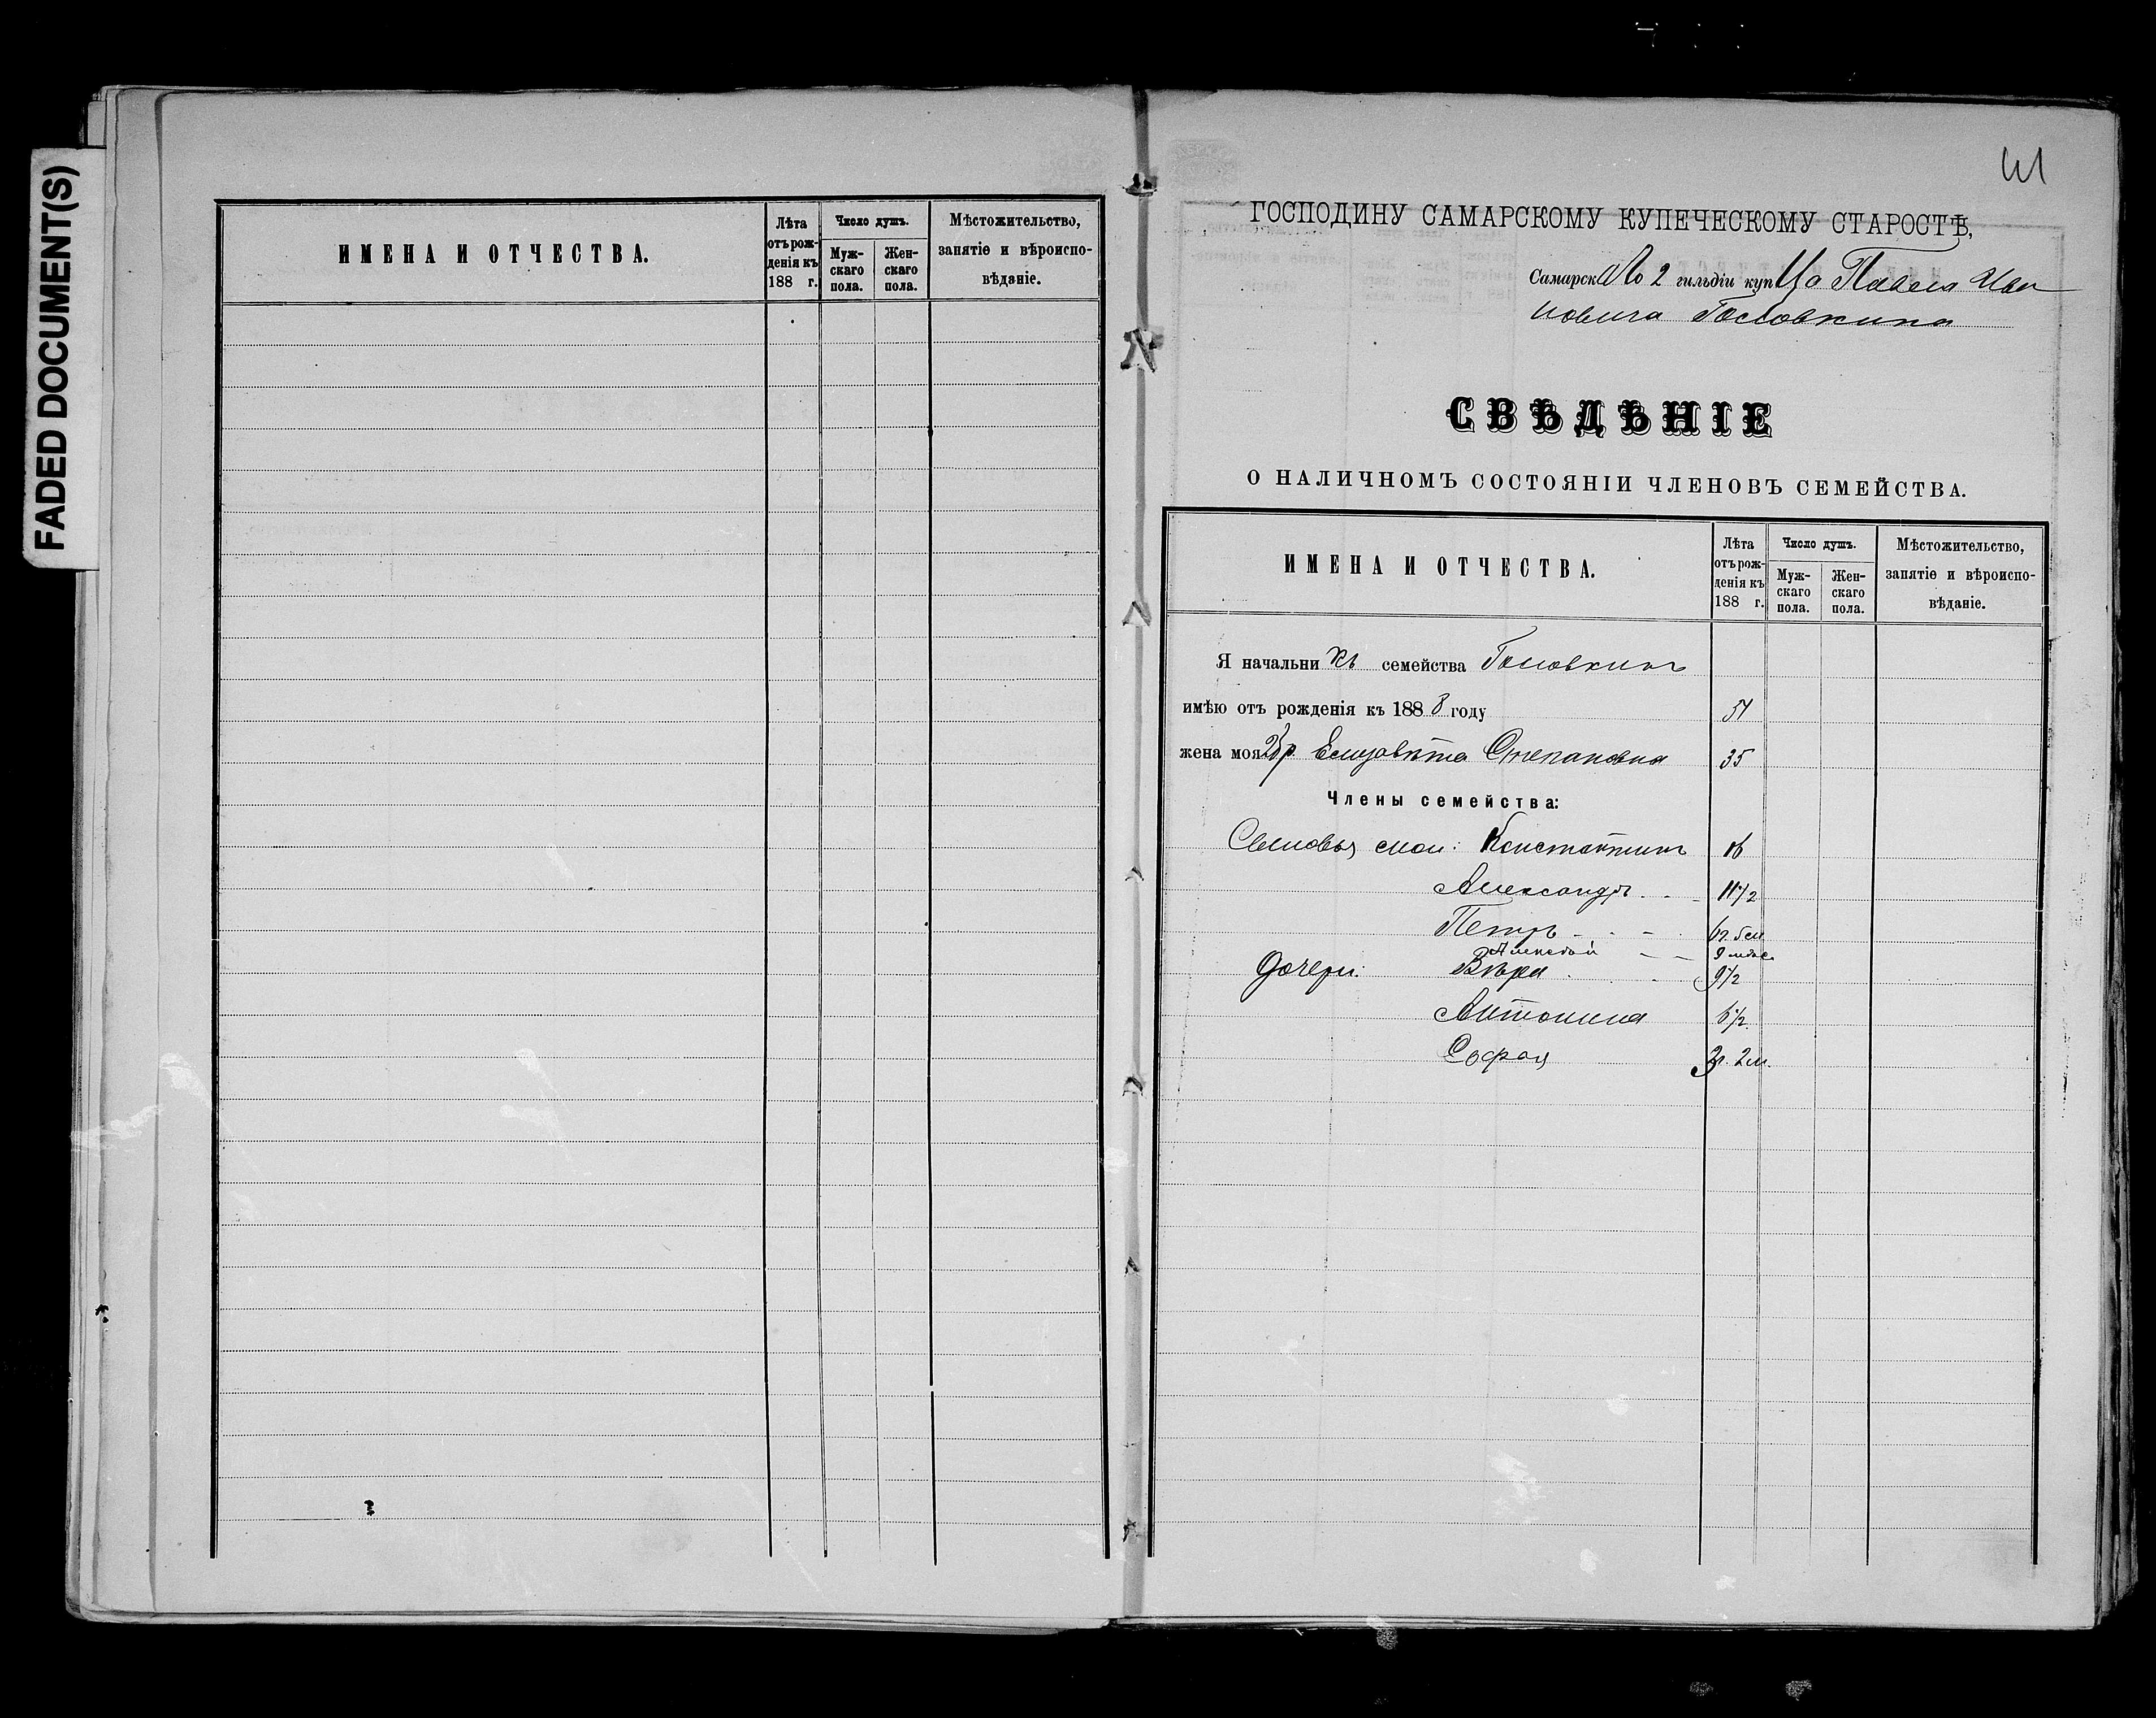 FADED DOCUMENT(S)
ИМЕНА И ОТЧЕСТВА.
Лѣта
отъ рож-
денія къ
188 г.
Число душъ.
Муж-
скаго
пола.
Жен-
скаго
пола.
Мѣстожительство,
занятіе и вѣроиспо-
вѣданіе.
41
ГОСПОДИНУ САМАРСКОМУ КУПЕЧЕСКОМУ СТАРОСТѢ,
Самарскаго 2 гильдіи купца Павла Ива
новича Головкина
СВѢДѢНІЕ
О НАЛИЧНОМЪ СОСТОЯНІИ ЧЛЕНОВЪ СЕМЕЙСТВА.
ИМЕНА И ОТЧЕСТВА.
Лѣта
отъ рож-
денія къ
188 г.
Число душъ.
Муж-
скаго
пола.
Жен-
скаго
пола.
Мѣстожительство,
занятіе и вѣроиспо-
вѣданіе.
Я начальникъ семейства Головкинъ
имѣю отъ рожденія къ 1888 году
жена моя 2 бр Елизавѣта Степановна 35
Члены семейства:
Сыновья мои: Константинъ 16
Александръ 11 1/2
Петръ
Алексѣй 9 мѣс.
Дочери: Вѣра 9 1/2
Антонина 6 1/2
Софья 2 г. 2 м.